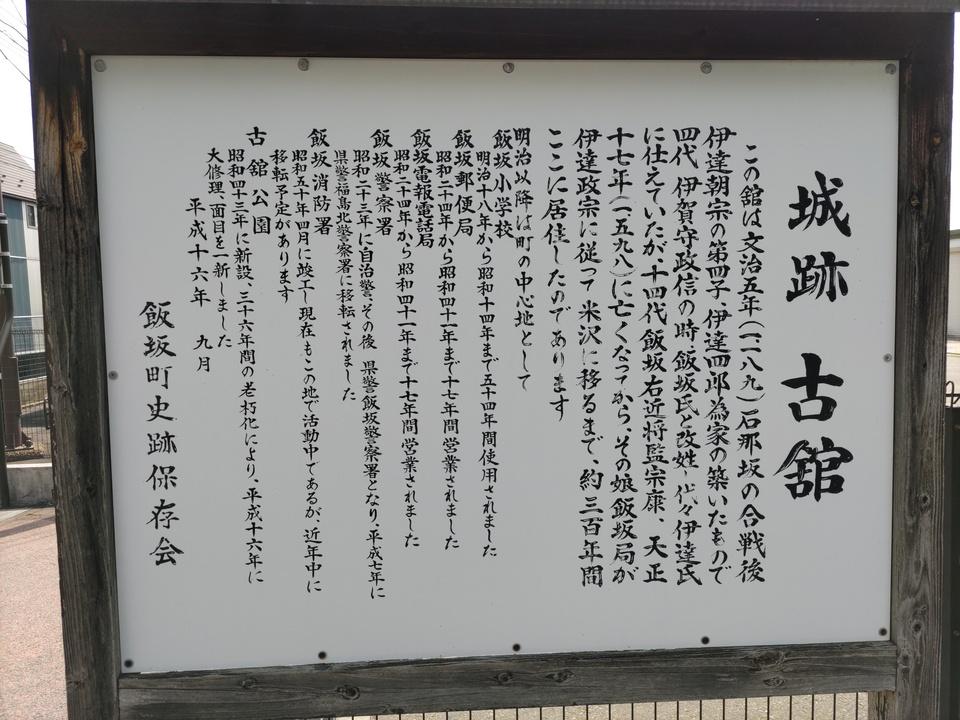 城跡 古舘
この舘は文治五年(一一八九)石那坂の合戦後
伊達朝宗の第四子、伊達四郎為家の築いたもので
四代、伊賀守政信の時、飯坂氏と改姓、代々伊達氏
に仕えていたが、十四代飯坂右近将監宗康、天正
十七年(一五九八)に亡くなってから、その娘飯坂局が
伊達政宗に従って米沢に移るまで、約三百年間
ここに居住したのであります
明治以降は町の中心地として
飯坂小学校
明治十八年から昭和十四年まで五十四年間使用されました
飯坂郵便局
昭和二十四年から昭和四十一年まで十七年間営業されました
飯坂電報電話局
昭和二十四年から昭和四十一年まで十七年間営業されました
飯坂警察署
昭和二十三年に自治警、その後 県警飯坂警察署となり、平成七年に
県警福島北警察署に移転されました
飯坂消防署
昭和五十年四月に竣工し現在もこの地で活動中であるが、近年中に
移転予定があります
古舘公園
昭和四十三年に新設、三十六年間の老朽化により、平成十六年に
大修理、面目を一新しました
平成十六年 九月
飯坂町史跡保存会